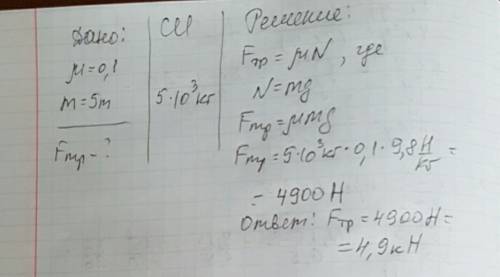 Дано:
μ=0,1
m=5т
Fтр-?
СИ
5·10³кг
Решение:
Fтр=μN, где
N=mg
Fтр=μmg
Fтр=5·10³кг·0,1·9,8Н/кг=
=4900Н
Ответ: Fтр=4900Н=
=4,9кН